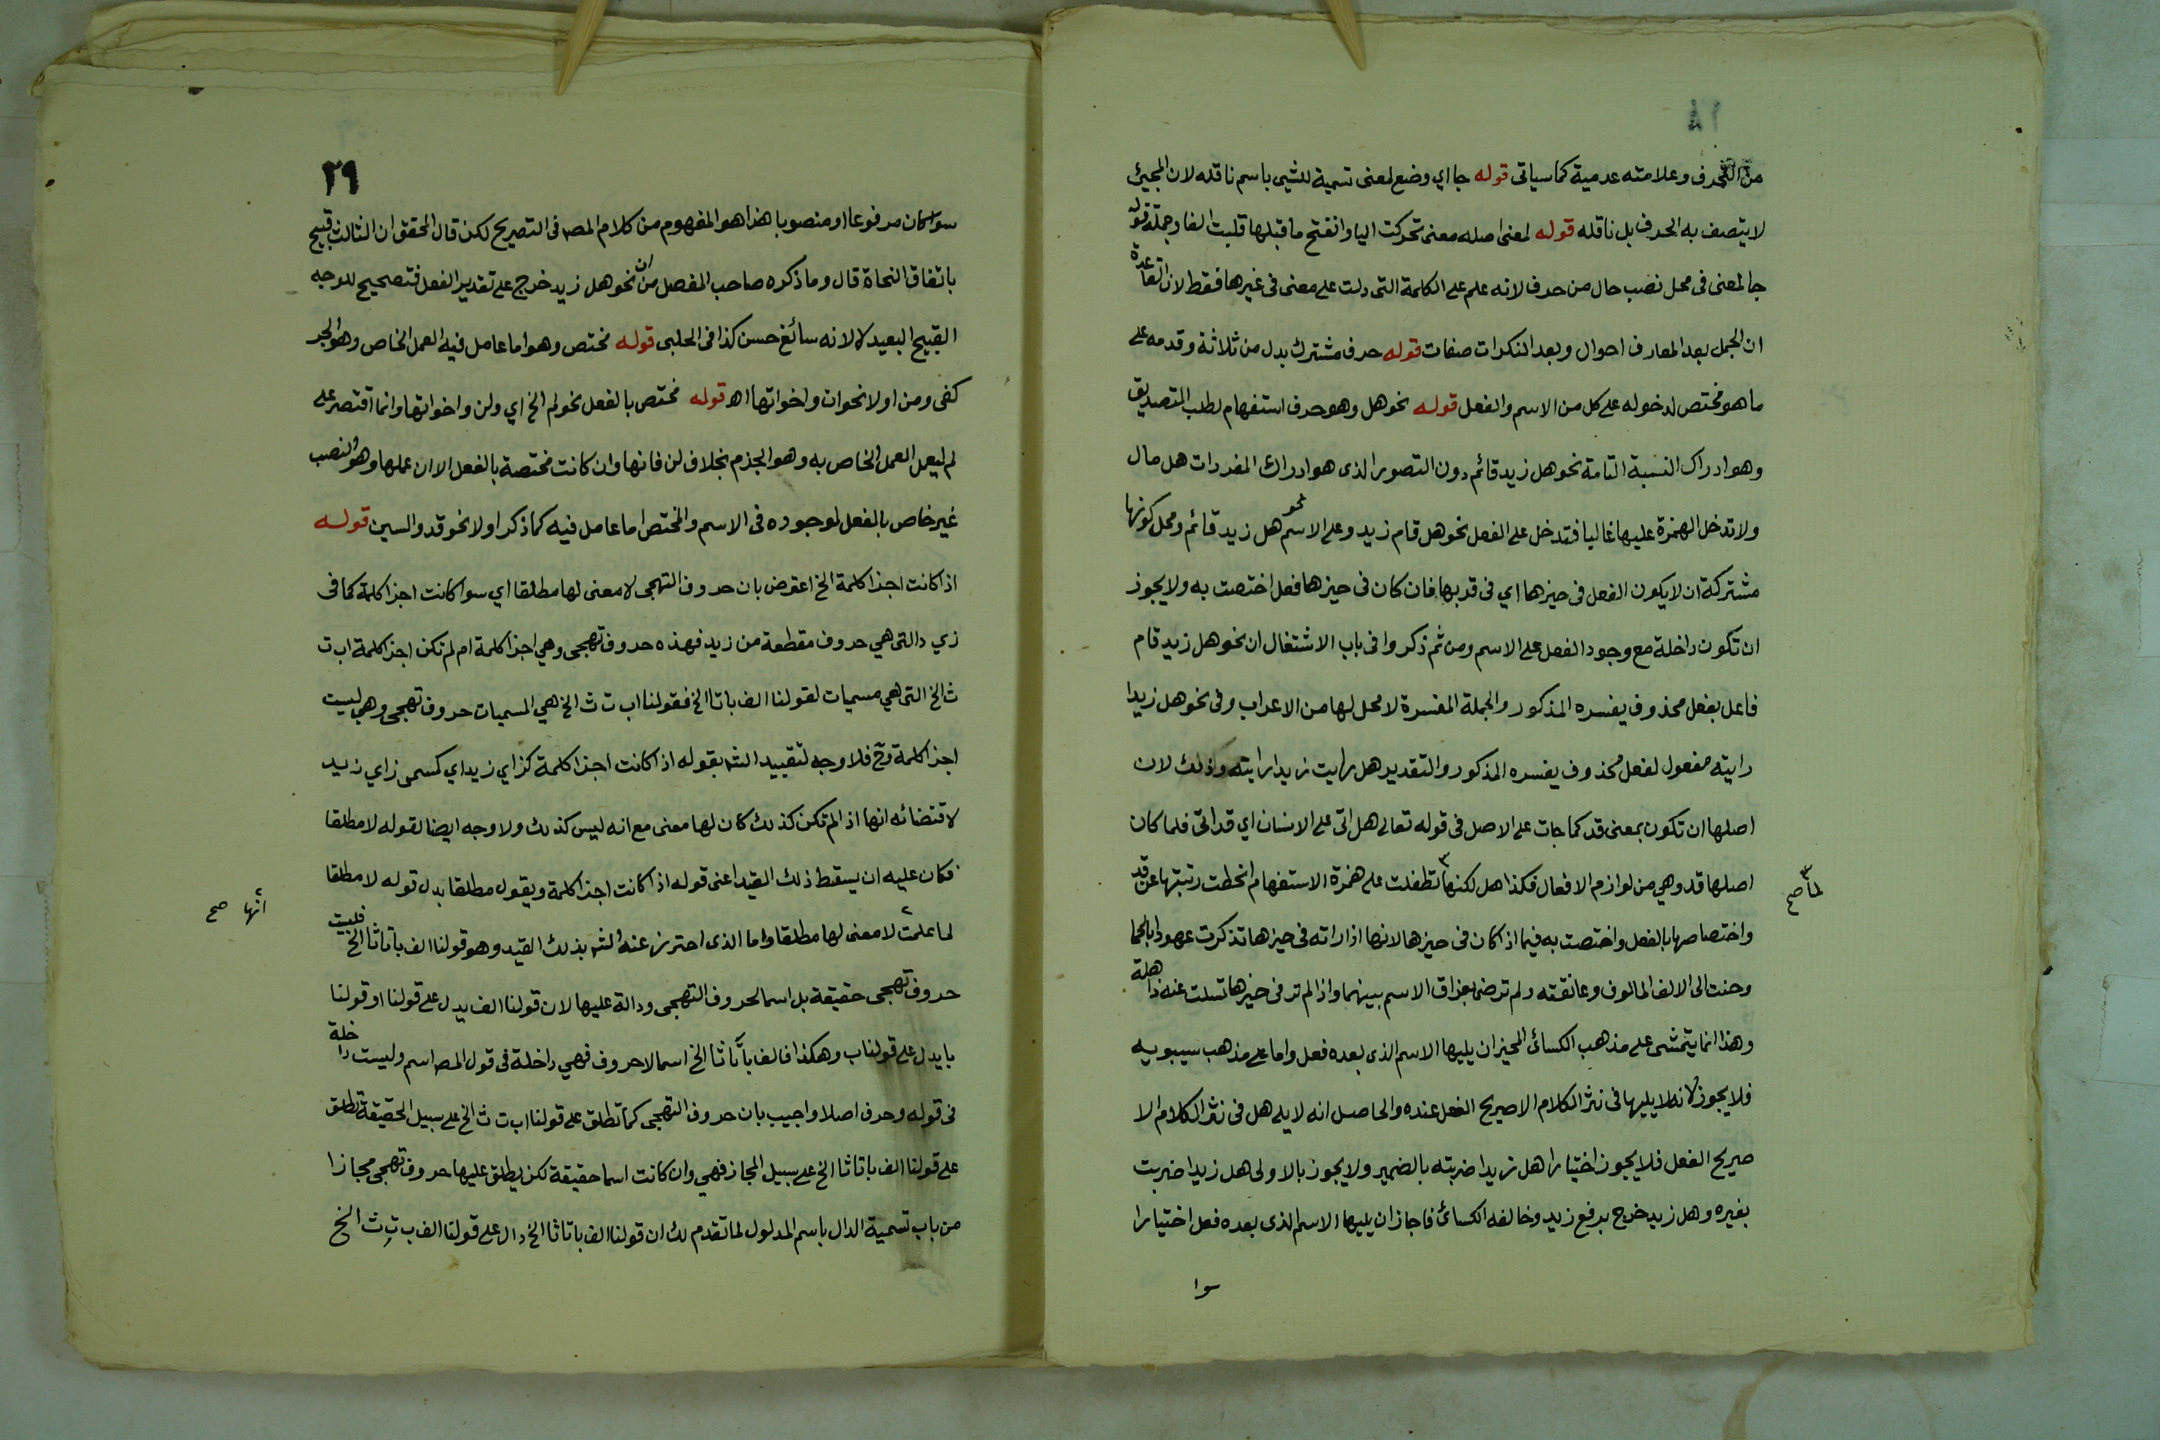 من الحرف وعلامته عدمية كما سياتى قوله جا اي وضع لمعنى تسمية للشيى باسم ناقله لان المجيئ
لا يتصف به الحرف بل ناقله قوله لمعنى اصله معنى تحركت اليا وانفتح ما قبلها قلبت الفا وجملة قوله
جا لمعنى فى محل نصب حال من حرف لانه علم على الكلمة التى دلت على معنى فى غيرها فقط لان القاعدة
ان الجمل بعد المعارف احوال وبعد النكرات صفات قوله حرف مشترك بدل من ثلاثة وقدمه على
ما هو مختص لدخوله على كل من الاسم والفعل قوله نحو هل وهو حرف استفهام لطلب التصديق
وهو ادراك النسبة التامة نحو هل زيد قائم دون التصور الذى هو ادراك المفردات هل مال
ولا تدخل الهمزة عليها غالبا فتدخل على الفعل نحو هل قام زيد وعلى الاسم نحو هل زيد قائم ومحل كونها
مشتركة ان لا يكون الفعل فى حيزها اي فى قربها فان كان فى حيزها فعل اختصت به ولا يجوز
ان تكون داخلة مع وجود الفعل على الاسم ومن ثم ذكروا فى باب الاشتغال ان نحو هل زيد قام
فاعل بفعل محذوف يفسره المذكور والجملة المفسرة لا محل لها من الاعراب وفى نحو هل زيدا
رايته مفعول لفعل محذوف يفسره المذكور والتقدير هل رايت زيدا رايته وذلك لان
اصلها ان تكون بمعنى قد كما جات على الاصل فى قوله تعالى هل اتى على الانسان اي قد اتى فلما كان
اصلها قد وهي من لوازم الافعال فكذا هل لكنها تطفلت على همزة الاستفهام انحطت رتبتها عن قد
لما صح
واختصاصها بالفعل واختصت به فيما اذا كان فى حيزها لانها اذا راته فى حيزها تذكرت عهودا بالحما
وحنت الى الالف المالوف وعانقته ولم ترضى بفراق الاسم بينهما واذا لم تر فى حيزها تسلت عنه ذاهلة
وهذا انما يتمشى على مذهب الكسائى المجيز ان يليها الاسم الذى بعده فعل واما على مذهب سيبويه
فلا يجوز لانه لا يليها فى نثر الكلام الا صريح الفعل عنده والحاصل انه لا يلى هل فى نثر الكلام الا
صريح الفعل فلا يجوز اختيارا هل زيدا ضربته بالضمير ولا يجوز بالاولى هل زيدا ضربت
بغيره وهل زيد خرج برفع زيد وخالفه الكسائى فاجاز ان يليها الاسم الذى بعده فعل اختيارا
سوا
٢٩
سوا كان مرفوعا او منصوبا هذا هو المفهوم من كلام المصـ فى التصريح لكن قال المحقق ان الثالث قبيح
باتفاق النحاة قال وما ذكره صاحب المفصل من ان نحو هل زيد خرج على تقدير الفعل فتصحيح للوجه
القبيح البعيد لا لانه سائغ حسن كذا فى الحلبى قوله مختص وهو اما عامل فيه العمل الخاص وهو الجر
كفى ومن او لا نحو ان واخواتها اهـ قوله مختص بالفعل نحو لم الخ اي ولن واخواتها وانما اقتصر على
لم ليعمل العمل الخاص به وهو الجزم بخلاف لن فانها وان كانت مختصة بالفعل الا ان عملها وهو النصب
غير خاص بالفعل لوجوده فى الاسم والمختص اما عامل فيه كما ذكر او لا نحو قد والسين قوله
اذا كانت اجزا كلمة الخ اعترض بان حروف التهجى لا معنى لها مطلقا اي سوا كانت اجزا كلمة كما فى
زي د التى هي حروف مقطعة من زيد فهذه حروف تهجى وهي اجزا كلمة ام لم تكن اجزا كلمة ا ب ت
ث الخ التى هي مسميات لقولنا الف با تا الخ فقولنا ا ب ت ث الخ هي المسميات حروف تهجى وهي ليست
اجزا كلمة وح فلا وجه لتقييد الشـ بقوله اذا كانت اجزا كلمة كزاي زيد اي كسمى زاي زيد
لاقتضائه انها اذا لم تكن كذلك كان لها معنى مع انه ليس كذلك ولا وجه ايضا لقوله لا مطلقا
فكان عليه ان يسقط ذلك القيد اعنى قوله اذا كانت اجزا كلمة ويقول مطلقا بدل قوله لا مطلقا
انها صح
لما علمت لا معنى لها مطلقا واما الذى احترز عنه الشـ بذلك القيد وهو قولنا الف با تا ثا الخ فليست
حروف تهجى حقيقة بل اسما لحروف التهجى ودالة عليها لان قولنا الف يدل على قولنا ا وقولنا
با يدل على قولنا ب وهكذا فالف با تا ثا الخ اسما لا حروف فهي داخلة فى قول المصـ اسم وليست داخلة
فى قوله وحرف اصلا واجيب بان حروف التهجى كما تطلق على قولنا ا ب ت ث الخ على سبيل الحقيقة تطلق
على قولنا الف با تا ثا الخ على سبيل المجاز فهي وان كانت اسما حقيقة لكن يطلق عليها حروف تهجى مجازا
من باب تسمية الدال باسم المدلول لما تقدم لك ان قولنا الف با تا ثا الخ دال على قولنا الف ب ت ث الخ